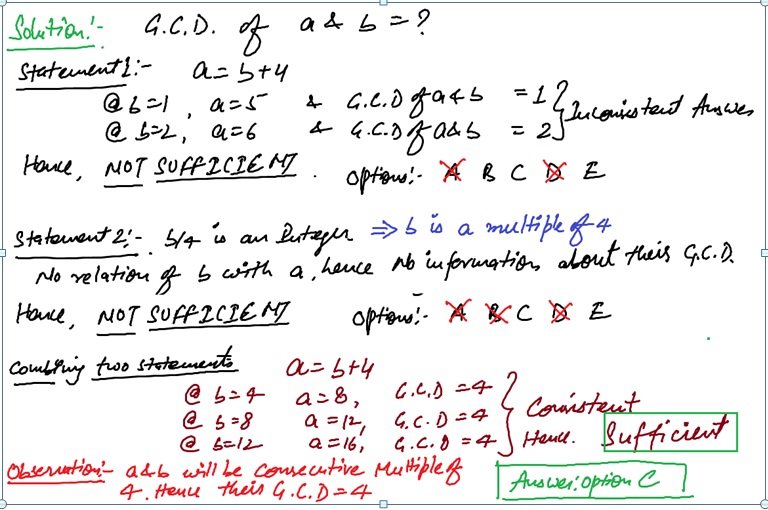 Solution:- G.C.D. of a & b = ?
Statement 1:- a = b+4
@ b=1, a=5 & G.C.D of a & b = 1
@ b=2, a=6 & G.C.D of a & b = 2 } Inconsistent Answer
Hence, NOT SUFFICIENT. options:- A B C D E
Statement 2:- b/4 is an Integer ⇒ b is a multiple of 4
No relation of b with a, hence No information about their G.C.D.
Hence, NOT SUFFICIENT options:- A B C D E
Combining two statements a = b+4
@ b=4 a=8, G.C.D = 4
@ b=8 a=12, G.C.D = 4 } Consistent
@ b=12 a=16, G.C.D = 4 Hence. Sufficient
Observation:- a & b will be Consecutive Multiple of
4. Hence their G.C.D = 4
Answer: option C